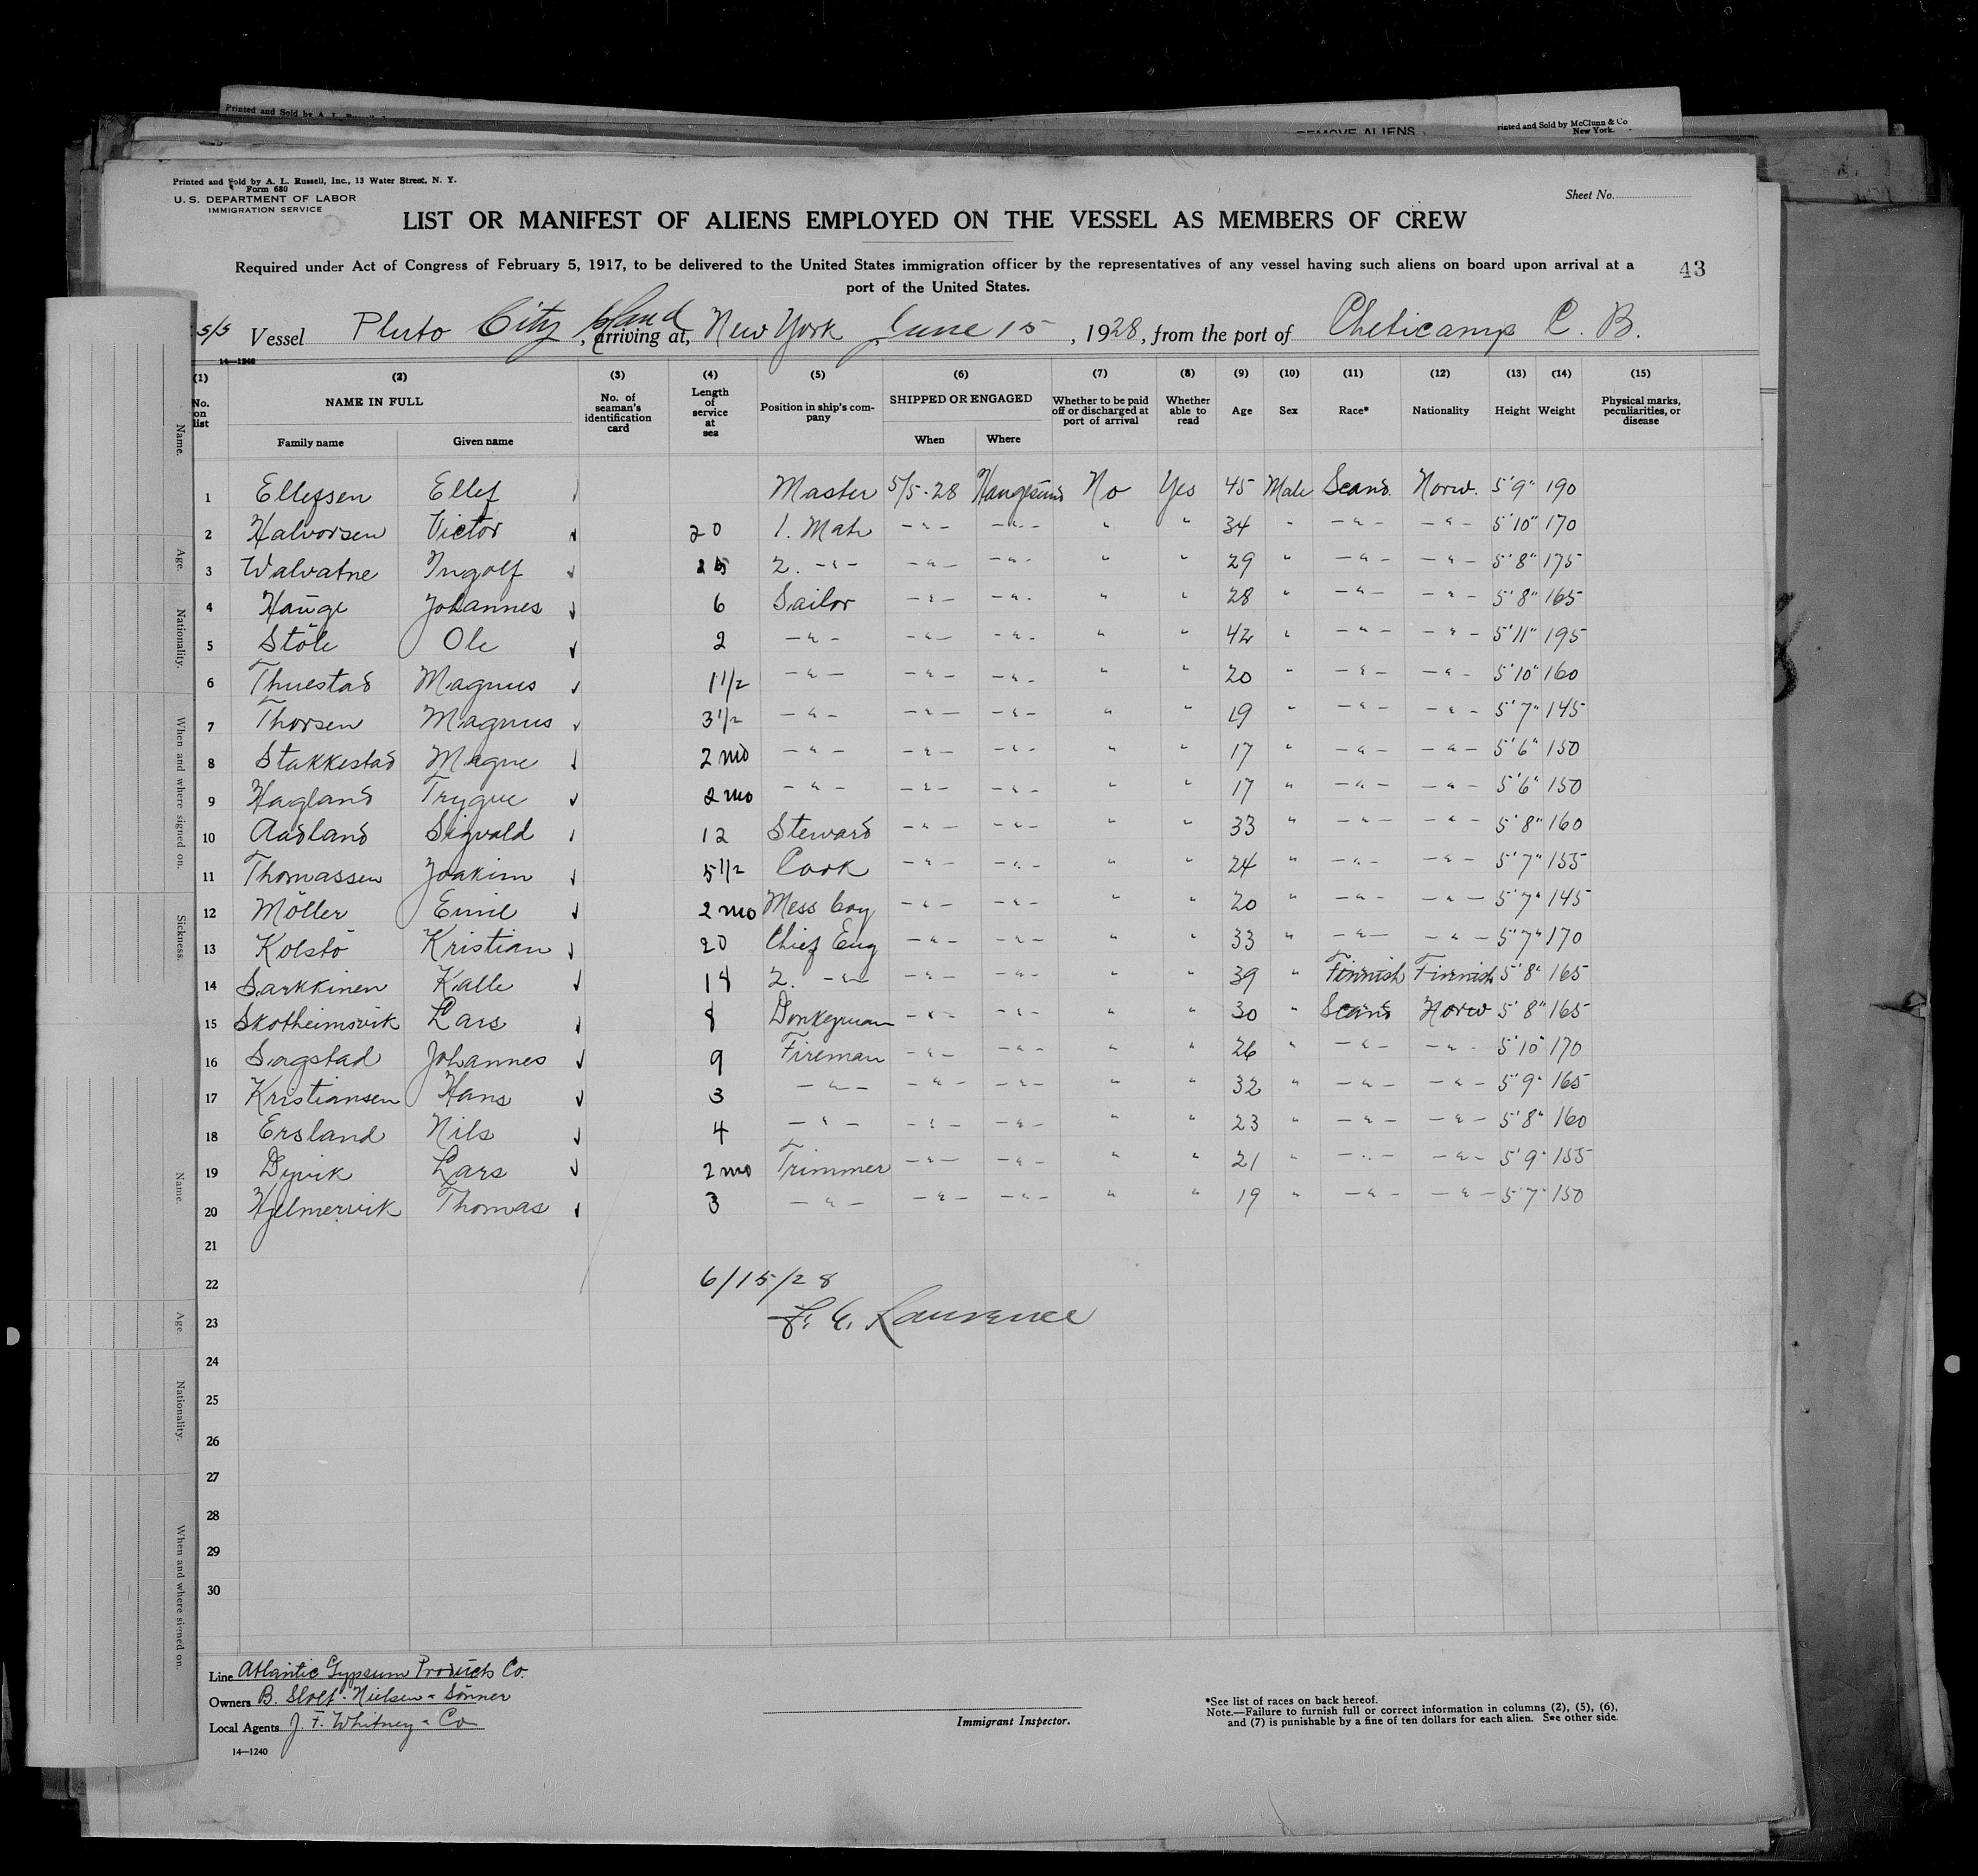 Printed and Sold by A. L. Russell
REMOVE ALIENS
rinted and Sold by McClunn & Co
New York.
Printed and Sold by A. L. Russell, Inc., 13 Water Street, N. Y.
Form 680
U. S. DEPARTMENT OF LABOR
IMMIGRATION SERVICE
Sheet No.
LIST OR MANIFEST OF ALIENS EMPLOYED ON THE VESSEL AS MEMBERS OF CREW
Required under Act of Congress of February 5, 1917, to be delivered to the United States immigration officer by the representatives of any vessel having such aliens on board upon arrival at a
port of the United States.
43
s/s Vessel Pluto City Island, arriving at, New York, June 15, 1928, from the port of Cheticamp C. B.
14—1240
(1) (2) (3) (4) (5) (6) (7) (8) (9) (10) (11) (12) (13) (14) (15)
No. on list NAME IN FULL Family name Given name No. of seaman's identification card Length of service at sea Position in ship's company SHIPPED OR ENGAGED When Where Whether to be paid off or discharged at port of arrival Whether able to read Age Sex Race* Nationality Height Weight Physical marks, peculiarities, or disease
1 Ellefsen Ellef Master 5/5-28 Haugesund No Yes 45 Male Scand. Norw. 5'9" 190
2 Halvorsen Victor ✓ 20 1. Mate -"- -"- " " 34 " -"- -"- 5'10" 170
3 Walvatne Ingolf ✓ 2. -"- -"- -"- " " 29 " -"- -"- 5'8" 175
4 Hauge Johannes ✓ 6 Sailor -"- -"- " " 28 " -"- -"- 5'8" 165
5 Stöle Ole ✓ 2 -"- -"- -"- " " 42 " -"- -"- 5'11" 195
6 Thuestad Magnus ✓ 1 1/2 -"- -"- -"- " " 20 " -"- -"- 5'10" 160
7 Thorsen Magnus ✓ 3 1/2 -"- -"- -"- " " 19 " -"- -"- 5'7" 145
8 Stakkestad Magne ✓ 2 mo -"- -"- -"- " " 17 " -"- -"- 5'6" 150
9 Hagland Trygve ✓ 2 mo -"- -"- -"- " " 17 " -"- -"- 5'6" 150
10 Aadland Sigvald ✓ 12 Steward -"- -"- " " 33 " -"- -"- 5'8" 160
11 Thomassen Joakim ✓ 5 1/2 Cook -"- -"- " " 24 " -"- -"- 5'7" 155
12 Möller Emil ✓ 2 mo Mess boy -"- -"- " " 20 " -"- -"- 5'7" 145
13 Kolstö Kristian ✓ 20 Chief Eng -"- -"- " " 33 " -"- -"- 5'7" 170
14 Sarkkinen Kalle ✓ 2. -"- -"- -"- " " 39 " Finnish Finnish 5'8" 165
15 Skotheimsvik Lars ✓ 8 Donkeyman -"- -"- " " 30 " Scand Norw 5'8" 165
16 Sagstad Johannes ✓ 9 Fireman -"- -"- " " 26 " -"- -"- 5'10" 170
17 Kristiansen Hans ✓ 3 -"- -"- -"- " " 32 " -"- -"- 5'9" 165
18 Ersland Nils ✓ 4 -"- -"- -"- " " 23 " -"- -"- 5'8" 160
19 Dyvik Lars ✓ 2 mo Trimmer -"- -"- " " 21 " -"- -"- 5'9" 155
20 Hjelmervik Thomas ✓ 3 -"- -"- -"- " " 19 " -"- -"- 5'7" 150
21
22 6/15/28
23 Laurence
24
25
26
27
28
29
30
Line Atlantic Gypsum Products Co.
Owners B. Stolt-Nielsen & Sönner
Local Agents J. F. Whitney & Co
14—1240
Immigrant Inspector.
*See list of races on back hereof.
Note.—Failure to furnish full or correct information in columns (2), (5), (6),
and (7) is punishable by a fine of ten dollars for each alien. See other side.
Name.
Age.
Nationality.
When and where signed on.
Sickness.
Name.
Age.
Nationality.
When and where signed on.